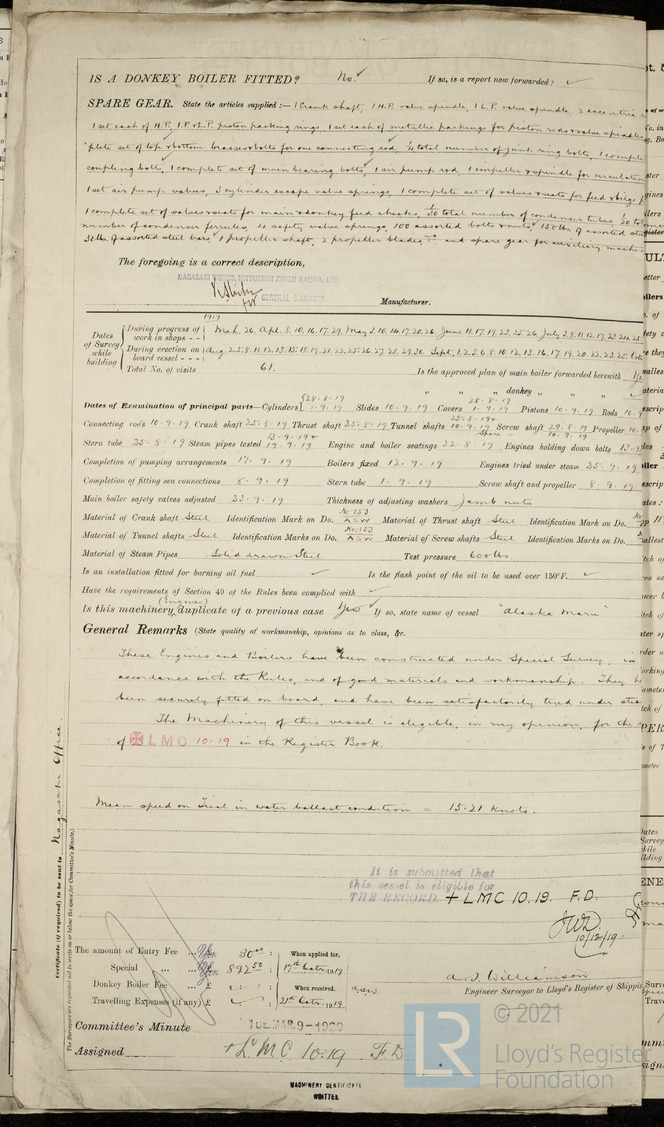 IS A DONKEY BOILER FITTED? No. If so, is a report now forwarded?
SPARE GEAR. State the articles supplied:— 1 Crank shaft, 1 H.P. valve spindle, 1 L.P. valve spindle, 2 eccentric
1 set each of H.P., I.P. & L.P. piston packing rings 1 set each of metallic packings for piston rods & valve spindles
plete set of top & bottom brasses & bolts for one connecting rod, total number of junk ring bolts, 1 comple
coupling bolts, 1 complete set of main bearing bolts, 1 air pump rod, 1 impeller & spindle for circulatin
1 set air pump valves, 3 cylinder escape valve springs, 1 complete set of valves & seats for feed & bilge
1 complete set of valves & seats for main & donkey feed checks, 1/30 total number of condenser tubes,
number of condenser ferrules, 4 safety valve springs, 100 assorted bolts & nuts, 150 lbs of assorted
30 lbs. of assorted steel bars, 1 propeller shaft, 2 propeller blades, and spare gear for auxiliary machin
The foregoing is a correct description,
NAGASAKI WORKS, MITSUBISHI ZOSEN KAISHA, LTD.
GENERAL MANAGER.
Manufacturer.
1919
Dates of Survey while building
During progress of work in shops - - Mch. 26, Apl. 8.10.16.17.29, May 3.10.14.17.20.26. June 11.17.19.23.25.26. July 2.8.11.12.17.23
During erection on board vessel - - - Aug. 2.5.8.11.12.13.15.18.19.21.22.25.26.27.28.29.30. Sept. 1.2.3.6.8.10.12.13.16.17.19.20.22.23.25.
Total No. of visits 61. Is the approved plan of main boiler forwarded herewith
" " " donkey " "
Dates of Examination of principal parts—Cylinders 28-8-19 1-9-19 Slides 10-9-19 Covers 28-8-19 1-9-19 Pistons 10-9-19 Rods 10-9
Connecting rods 10-9-19 Crank shaft 25-8-19 Thrust shaft 25-8-19 Tunnel shafts 10-9-19 Screw shaft 29-8-19 Propeller 10
Stern tube 25-8-19 Steam pipes tested 13-9-19 & 19-9-19 Engine and boiler seatings 22-8-19 Engines holding down bolts 12-9
Completion of pumping arrangements 17-9-19 Boilers fixed 12-9-19 Engines tried under steam 25-9-19
Completion of fitting sea connections 8-9-19 Stern tube 1-9-19 Screw shaft and propeller 8-9-19
Main boiler safety valves adjusted 23-9-19 Thickness of adjusting washers Jamb nuts
Material of Crank shaft Steel Identification Mark on Do. No. 153 ASW Material of Thrust shaft Steel Identification Mark on Do.
Material of Tunnel shafts Steel Identification Marks on Do. No. 153 ASW Material of Screw shafts Steel Identification Marks on Do.
Material of Steam Pipes Solid drawn Steel Test pressure 600 lbs.
Is an installation fitted for burning oil fuel Is the flash point of the oil to be used over 150°F.
Have the requirements of Section 49 of the Rules been complied with
Is this machinery (Engines) duplicate of a previous case Yes If so, state name of vessel "Alaska Maru"
General Remarks (State quality of workmanship, opinions as to class, &c.
These Engines and Boilers have been constructed under Special Survey, in
accordance with the Rules, and of good materials and workmanship. They h
been securely fitted on board, and have been satisfactorily tried under stea
The Machinery of this vessel is eligible, in my opinion, for the
of LMC 10.19 in the Register Book.
Mean speed on Trial in water ballast condition = 15.21 Knots.
It is submitted that
this vessel is eligible for
THE RECORD. + LMC 10.19. F.D.
JWD
10/12/19
The amount of Entry Fee ... Yen 30.00 : When applied for,
Special ... ... Yen 892.50 : 17th Octr. 1919
Donkey Boiler Fee ... £ : When received,
Travelling Expenses (if any) £ : 21st Octr. 1919
A. S. Williamson
Engineer Surveyor to Lloyd's Register of Shippin
Committee's Minute TUE. MAR. 9-1920
Assigned + LMC 10.19 F.D.
MACHINERY CERTIFICATE
WRITTEN
Certificate (if required) to be sent to Nagasaki Office
The Surveyors are requested not to write on or below the space for Committee's Minute.
© 2021
LR
Lloyd's Register
Foundation